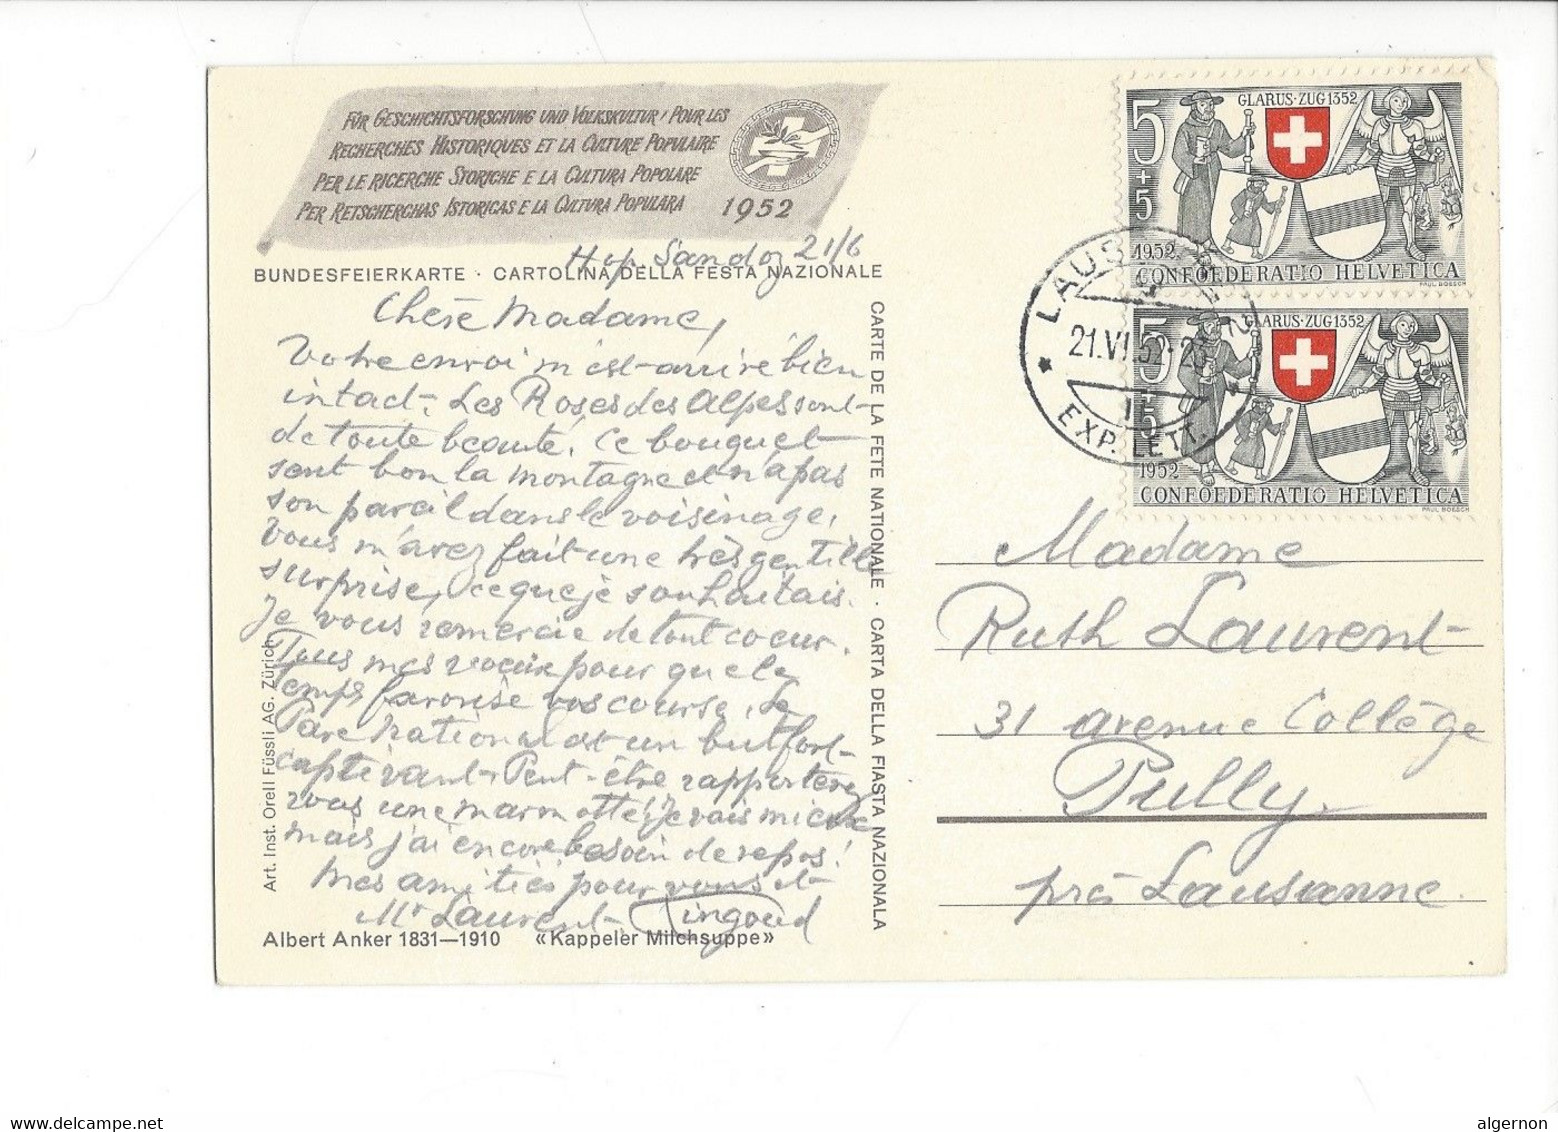 FÜR GESCHICHTSFORSCHUNG UND VOLKSKULTUR / POUR LES
RECHERCHES HISTORIQUES ET LA CULTURE POPULAIRE
PER LE RICERCHE STORICHE E LA CULTURA POPOLARE
PER RETSCHERCHAS ISTORICAS E LA CULTURA POPULARA
1952
BUNDESFEIERKARTE · CARTOLINA DELLA FESTA NAZIONALE
Hop. Sandoz 21/6
Chère Madame,
Votre envoi m'est arrivé bien
intact. Les Roses des Alpes sont
de toute beauté. Ce bouquet
sent bon la montagne et n'a pas
son pareil dans le voisinage.
Vous m'avez fait une très gentille
surprise, ce que je souhaitais.
Je vous remercie de tout coeur.
Tous mes voeux pour que le
temps favorise vos course. Le
Parc National est un but fort
captivant. Peut-être rapporterez
vous une marmotte! Je vais mieux
mais j'ai encore besoin de repos!
Mes amitiés pour vous et
Mr Laurent. Tingoud
Albert Anker 1831—1910 «Kappeler Milchsuppe»
Art. Inst. Orell Füssli AG. Zürich
CARTE DE LA FETE NATIONALE · CARTA DELLA FIASTA NAZIONALA
GLARUS·ZUG 1352
5+5
1952
CONFOEDERATIO HELVETICA
PAUL BOESCH
GLARUS·ZUG 1352
5+5
1952
CONFOEDERATIO HELVETICA
PAUL BOESCH
21.VI.52
EXP. LETT.
Madame
Ruth Laurent
31 avenue Collège
Pully.
près Lausanne.
algernon